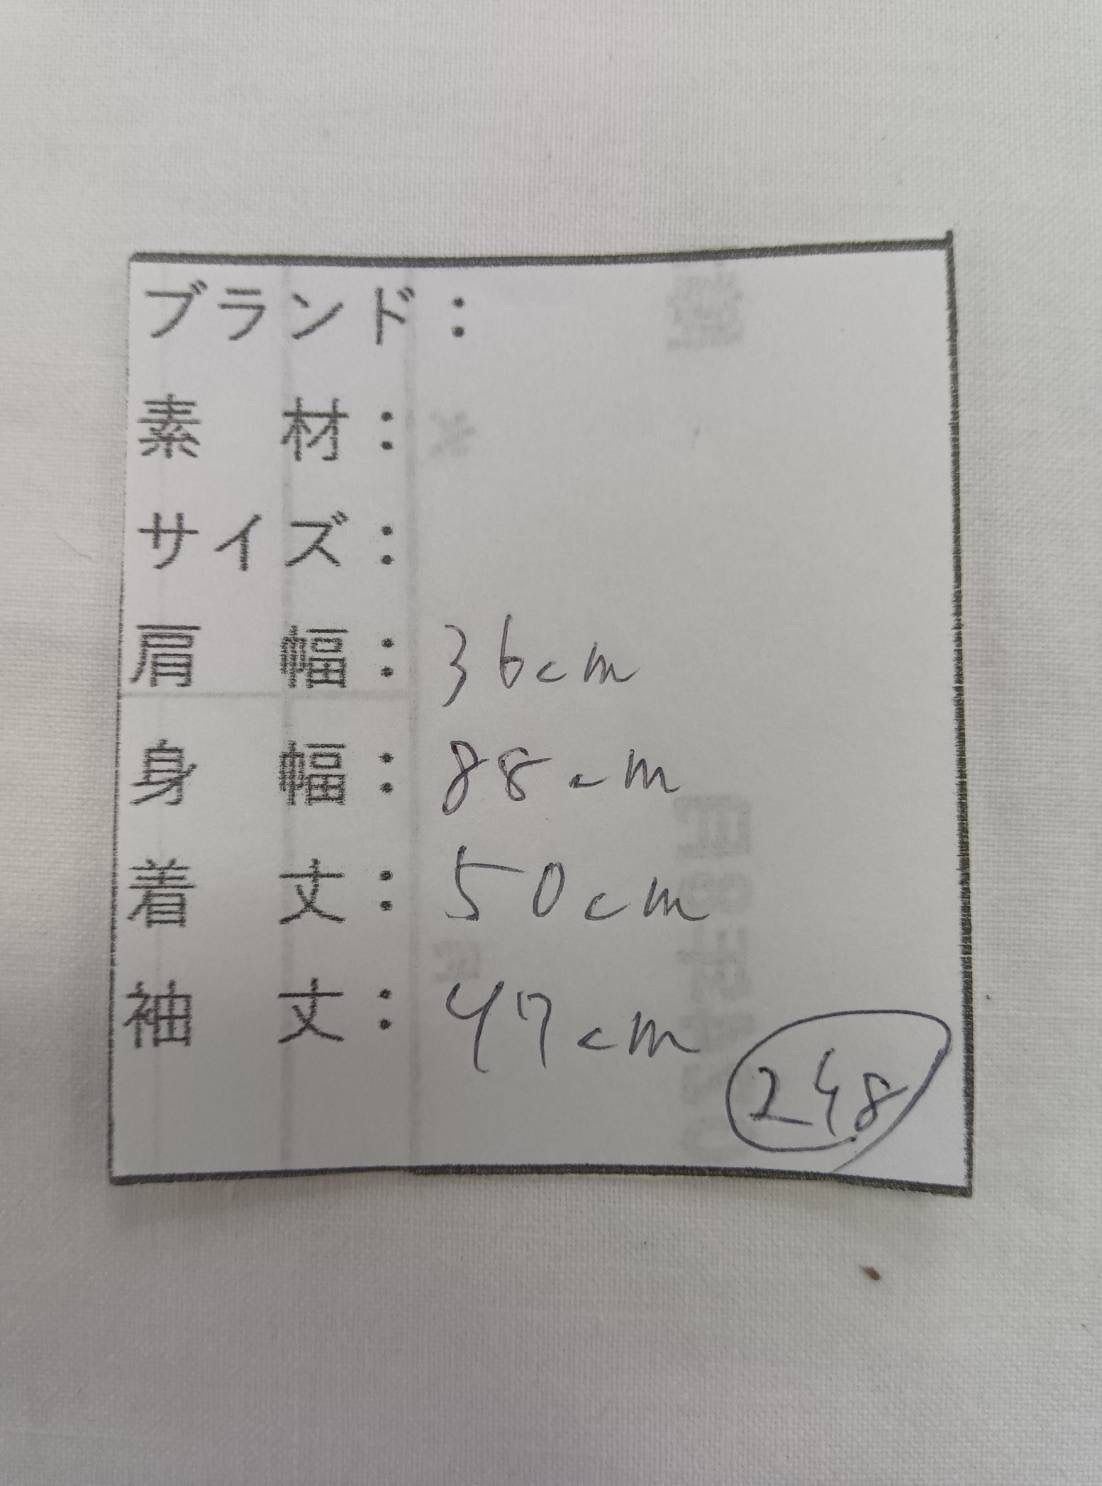 ブランド：
素　材：
サイズ：
肩　幅： 36cm
身　幅： 88cm
着　丈： 50cm
袖　丈： 47cm
248